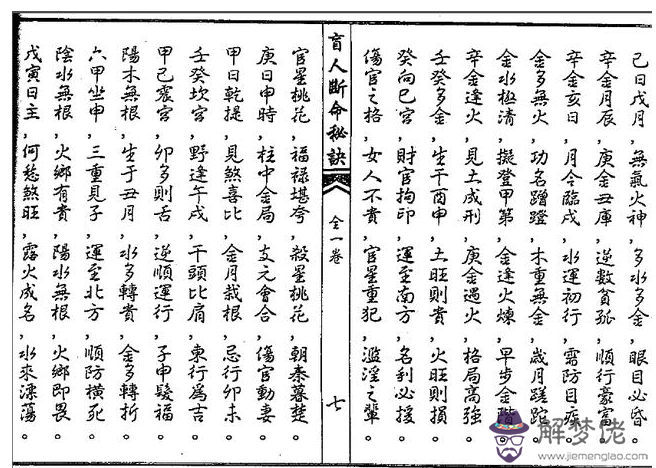 己日戊月，無氣火神，多水多金，眼目必昏。
辛金月辰，庚金丑庫，逆數貧孤，順行豪富。
辛金亥日，月令臨戌，水運初行，需防目疾。
金多無火，功名蹭蹬，木重無金，歲月蹉跎。
金水極清，擬登甲第，金逢火煉，早步金階。
辛金逢火，見土成刑，庚金遇火，格局高強。
壬癸多金，生于酉申，土旺則貴，火旺則損。
癸向巳宮，財官拘印，運至南方，名利必援。
傷官之格，女人不貴，官星重犯，濫淫之輩。
盲人斷命秘訣
全一卷
七
官星桃花，福祿堪夸，殺星桃花，朝秦暮楚。
庚日申時，柱中金局，支元會合，傷官動妻。
甲日乾提，見煞喜比，金月栽根，忌行卯未。
壬癸坎宮，野逢午戌，干頭比肩，東行爲吉。
甲己震宮，卯多則舌，逆順運行，子申髮福。
陽木無根，生于丑月，水多轉貴，金多轉折。
六甲坐申，三重見子，運至北方，順防橫死。
陰水無根，火鄉有貴，陽水無根，火鄉即畏。
戊寅日主，何愁煞旺，露火成名，水來漂蕩。
解梦佬
www.jiemenglao.com